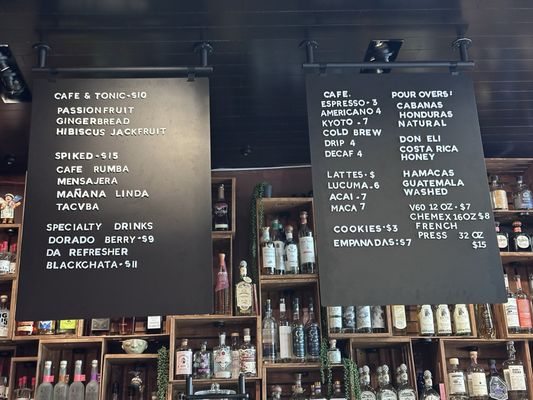 CAFE & TONIC-$10
PASSIONFRUIT
GINGERBREAD
HIBISCUS JACKFRUIT
SPIKED-$15
CAFE RUMBA
MENSAJERA
MAÑANA LINDA
TACVBA
SPECIALTY DRINKS
DORADO BERRY-$9
DA REFRESHER
BLACKGHATA-$11
CAFE.
ESPRESSO-3
AMERICANO 4
KYOTO - 7
COLD BREW
DRIP 4
DECAF 4
LATTES-$
LUCUMA.6
ACAI-7
MACA 7
COOKIES:$3
EMPANADAS:$7
POUR OVERS:
CABANAS
HONDURAS
NATURAL
DON ELI
COSTA RICA
HONEY
HAMACAS
GUATEMALA
WASHED
V60 12 OZ.$7
CHEMEX 16OZ $8
FRENCH
PRESS 32 OZ
$15